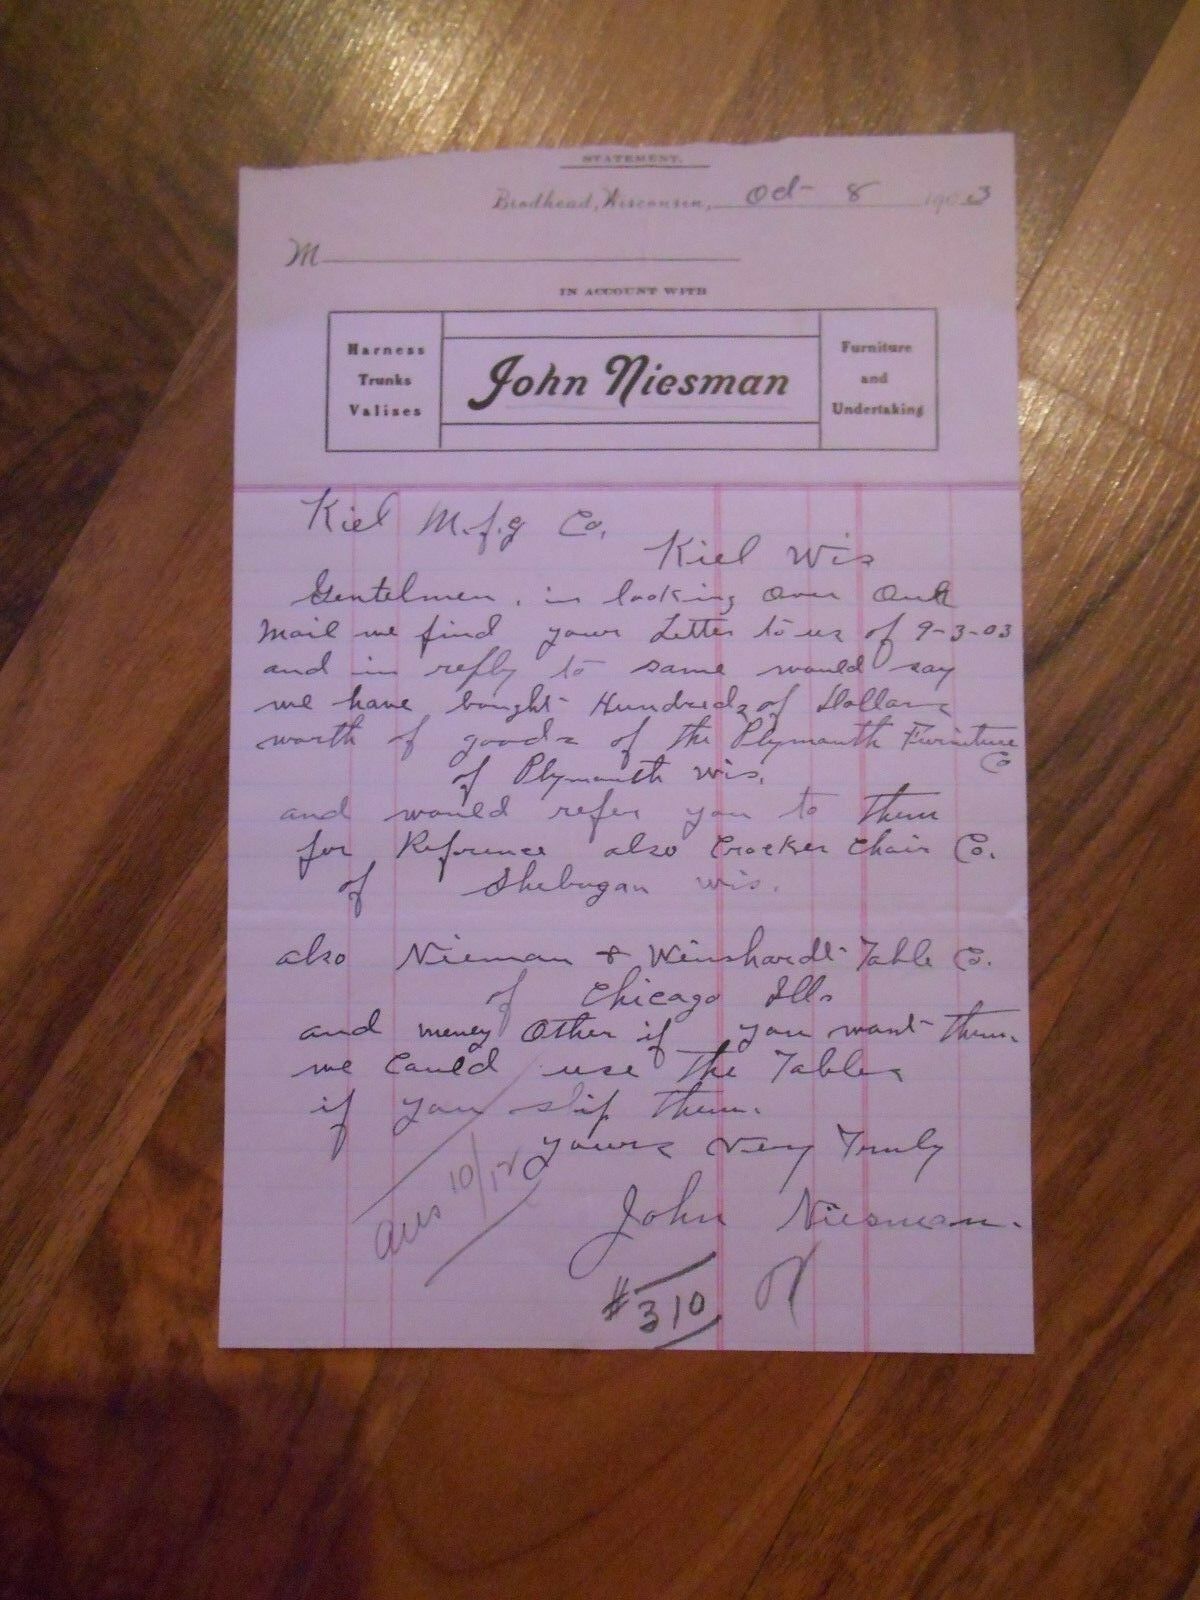 STATEMENT.
Brodhead, Wisconsin, Oct 8 1903
M
IN ACCOUNT WITH
Harness
Trunks
Valises
John Niesman
Furniture
and
Undertaking
Kiel M.f.g Co.
Kiel Wis
Gentelmen. in looking over our
Mail we find your Letter to us of 9-3-03
and in reply to same would say
we have bought Hundreds of Dollars
worth of goods of the Plymouth Furniture
Co
of Plymouth Wis.
and would refer you to them
for Reference also Crocker Chair Co.
of Shebugan Wis.
also Nieman & Weinshardt Table Co.
of Chicago Ills
and meney Other if you want them.
we Could use the Tables
if you ship them.
yours Very Truly
Ans 10/12
John Niesman.
#310